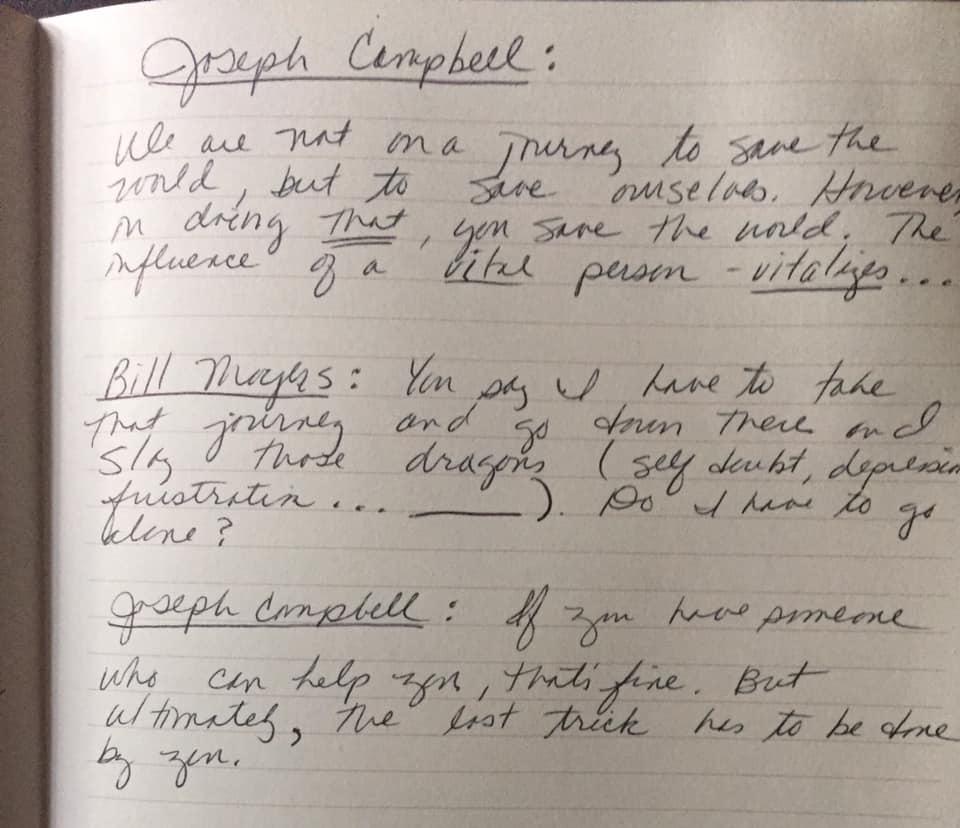 Joseph Campbell:
We are not on a journey to save the
world, but to save ourselves. However
in doing that, you save the world. The
influence of a vital person - vitalizes...
Bill Moyers: You say I have to take
that journey and go down there and
slay those dragons (self doubt, depression
frustration... ____). Do I have to go
alone?
Joseph Campbell: If you have someone
who can help you, that's fine. But
ultimately, the last trick has to be done
by you.